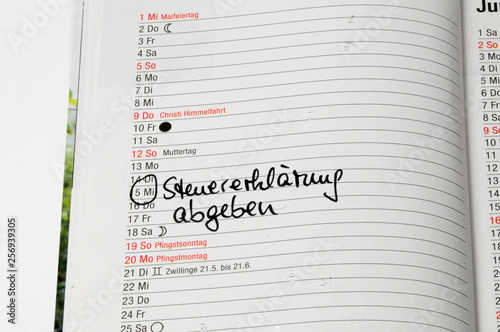 1 Mi Maifeiertag
2 Do
3 Fr
4 Sa
5 So
6 Mo
7 Di
8 Mi
9 Do Christi Himmelfahrt
10 Fr
11 Sa
12 So Muttertag
13 Mo
14 Di
5 Mi Steuererklärung
abgeben
16 Do
17 Fr
18 Sa
19 So Pfingstsonntag
20 Mo Pfingstmontag
21 Di II Zwillinge 21.5. bis 21.6.
22 Mi
23 Do
24 Fr
25 Sa
Ju
1 Sa
2 So
3 Mo
4 Di
5 Mi
6 Do
7 Fr
8 Sa
9 So
10 M
11 D
12 M
13 D
14 F
15 S
16
17
18
19
20
Adobe Stock | #256939305